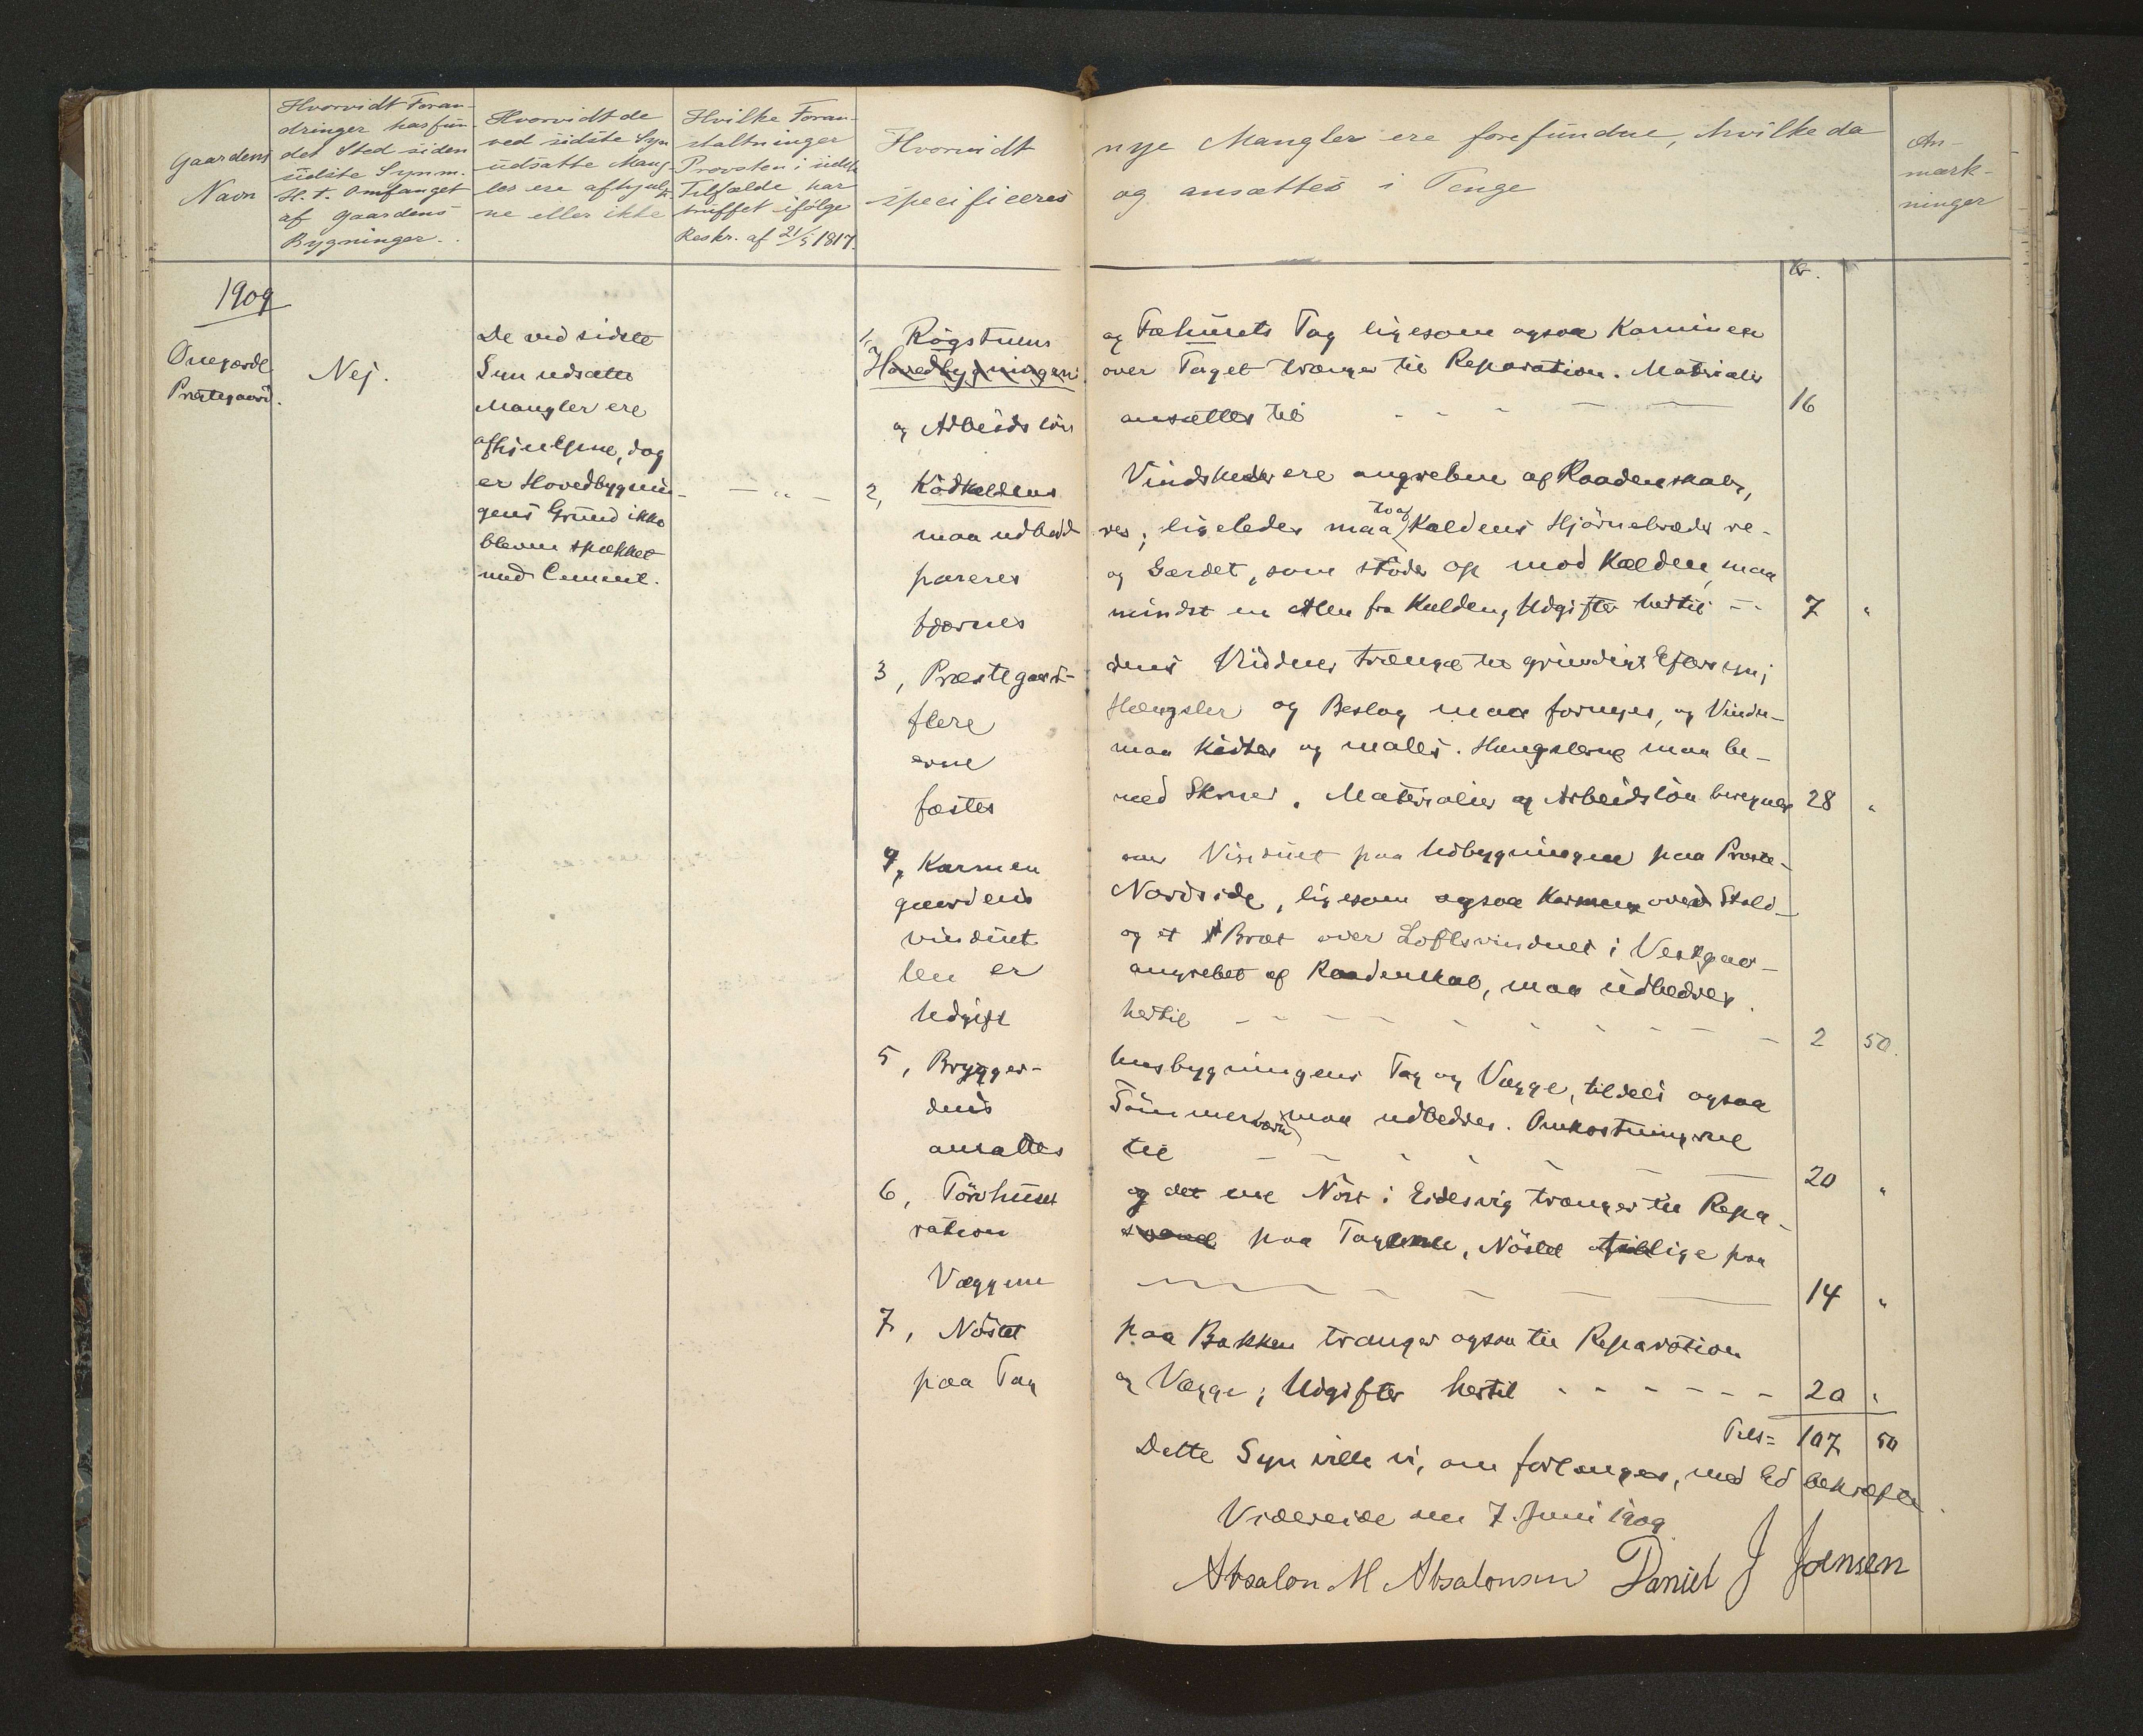 Gaardens
Navn
Hvorvidt Foran-
dringer har fun-
det Sted siden
sidste Synm.
H. t. Omfanget
af Gaardens
Bygninger.
Hvorvidt de
ved sidste Syn
udsatte Mang-
ler ere afhjulp-
ne eller ikke
Hvilke Foran-
staltninger
Provsten i sidste
Tilfælde har
truffet ifølge
Reskr. af 21/5 1817.
Hvorvidt nye Mangler ere forefundne, hvilke da
specificeres og ansættes i Penge
An-
mærk-
ninger
Kr.
1909
Onegærde
Præstegaard.
Nej.
De ved sidste
Syn udsatte
Mangler ere
afhjulpne, dog
er Hovedbygnin-
gens Grund ikke
bleven spækket
med Cement.
— " —
1, Røgstuens og Fæhusets Tag ligesom ogsaa Karmene
Hovedbygningen over Taget trænger til Reparation. Materialer
og Arbeidsløn ansættes til 16
2, Kødkældens Vindskeder ere angrebne af Raadenskab,
maa udbedres; ligeledes maa to af Kældens Hjørnebræder re-
pareres og Gærdet, som støder op mod Kælden, maa
fjærnes mindst en Alen fra Kælden, Udgifter hertil 7 "
3, Præstegaardens Vinduer trænge til grundigt Eftersyn;
flere Hængsler og Beslag maa fornyes, og Vindu-
erne maa kittes og males. Hængslerne maa be-
fæstes med Skruer. Materialier og Arbeidsløn beregnes 28 "
4, Karmen om Vinduet paa Udbygningen paa Præste-
gaardens Nordside, ligesom ogsaa Karmen over Stald-
vinduet og et Bræt over Loftsvinduet i Vestgav-
len er angrebet af Raadenskab, maa udbedres.
Udgift hertil 2 50.
5, Brygger- husbygningens Tag og Vægge, tildels ogsaa
dens Tømmerværk maa udbedres. Omkostningerne
ansættes til 20 "
6, Tørvhuset og det ene Nøst i Eidesvig trænger til Repa-
ration paa Tagene, Nøstet tillige paa
Væggene 14 "
7, Nøstet paa Bakken trænger ogsaa til Reparation
paa Tag og Vægge; Udgifter hertil 20 "
Tils = 107 50
Dette Syn ville vi, om forlanges, med Ed bekræfte.
Videreide den 7. Juni 1909
Absalon M Absalonsen Daniel J Joensen